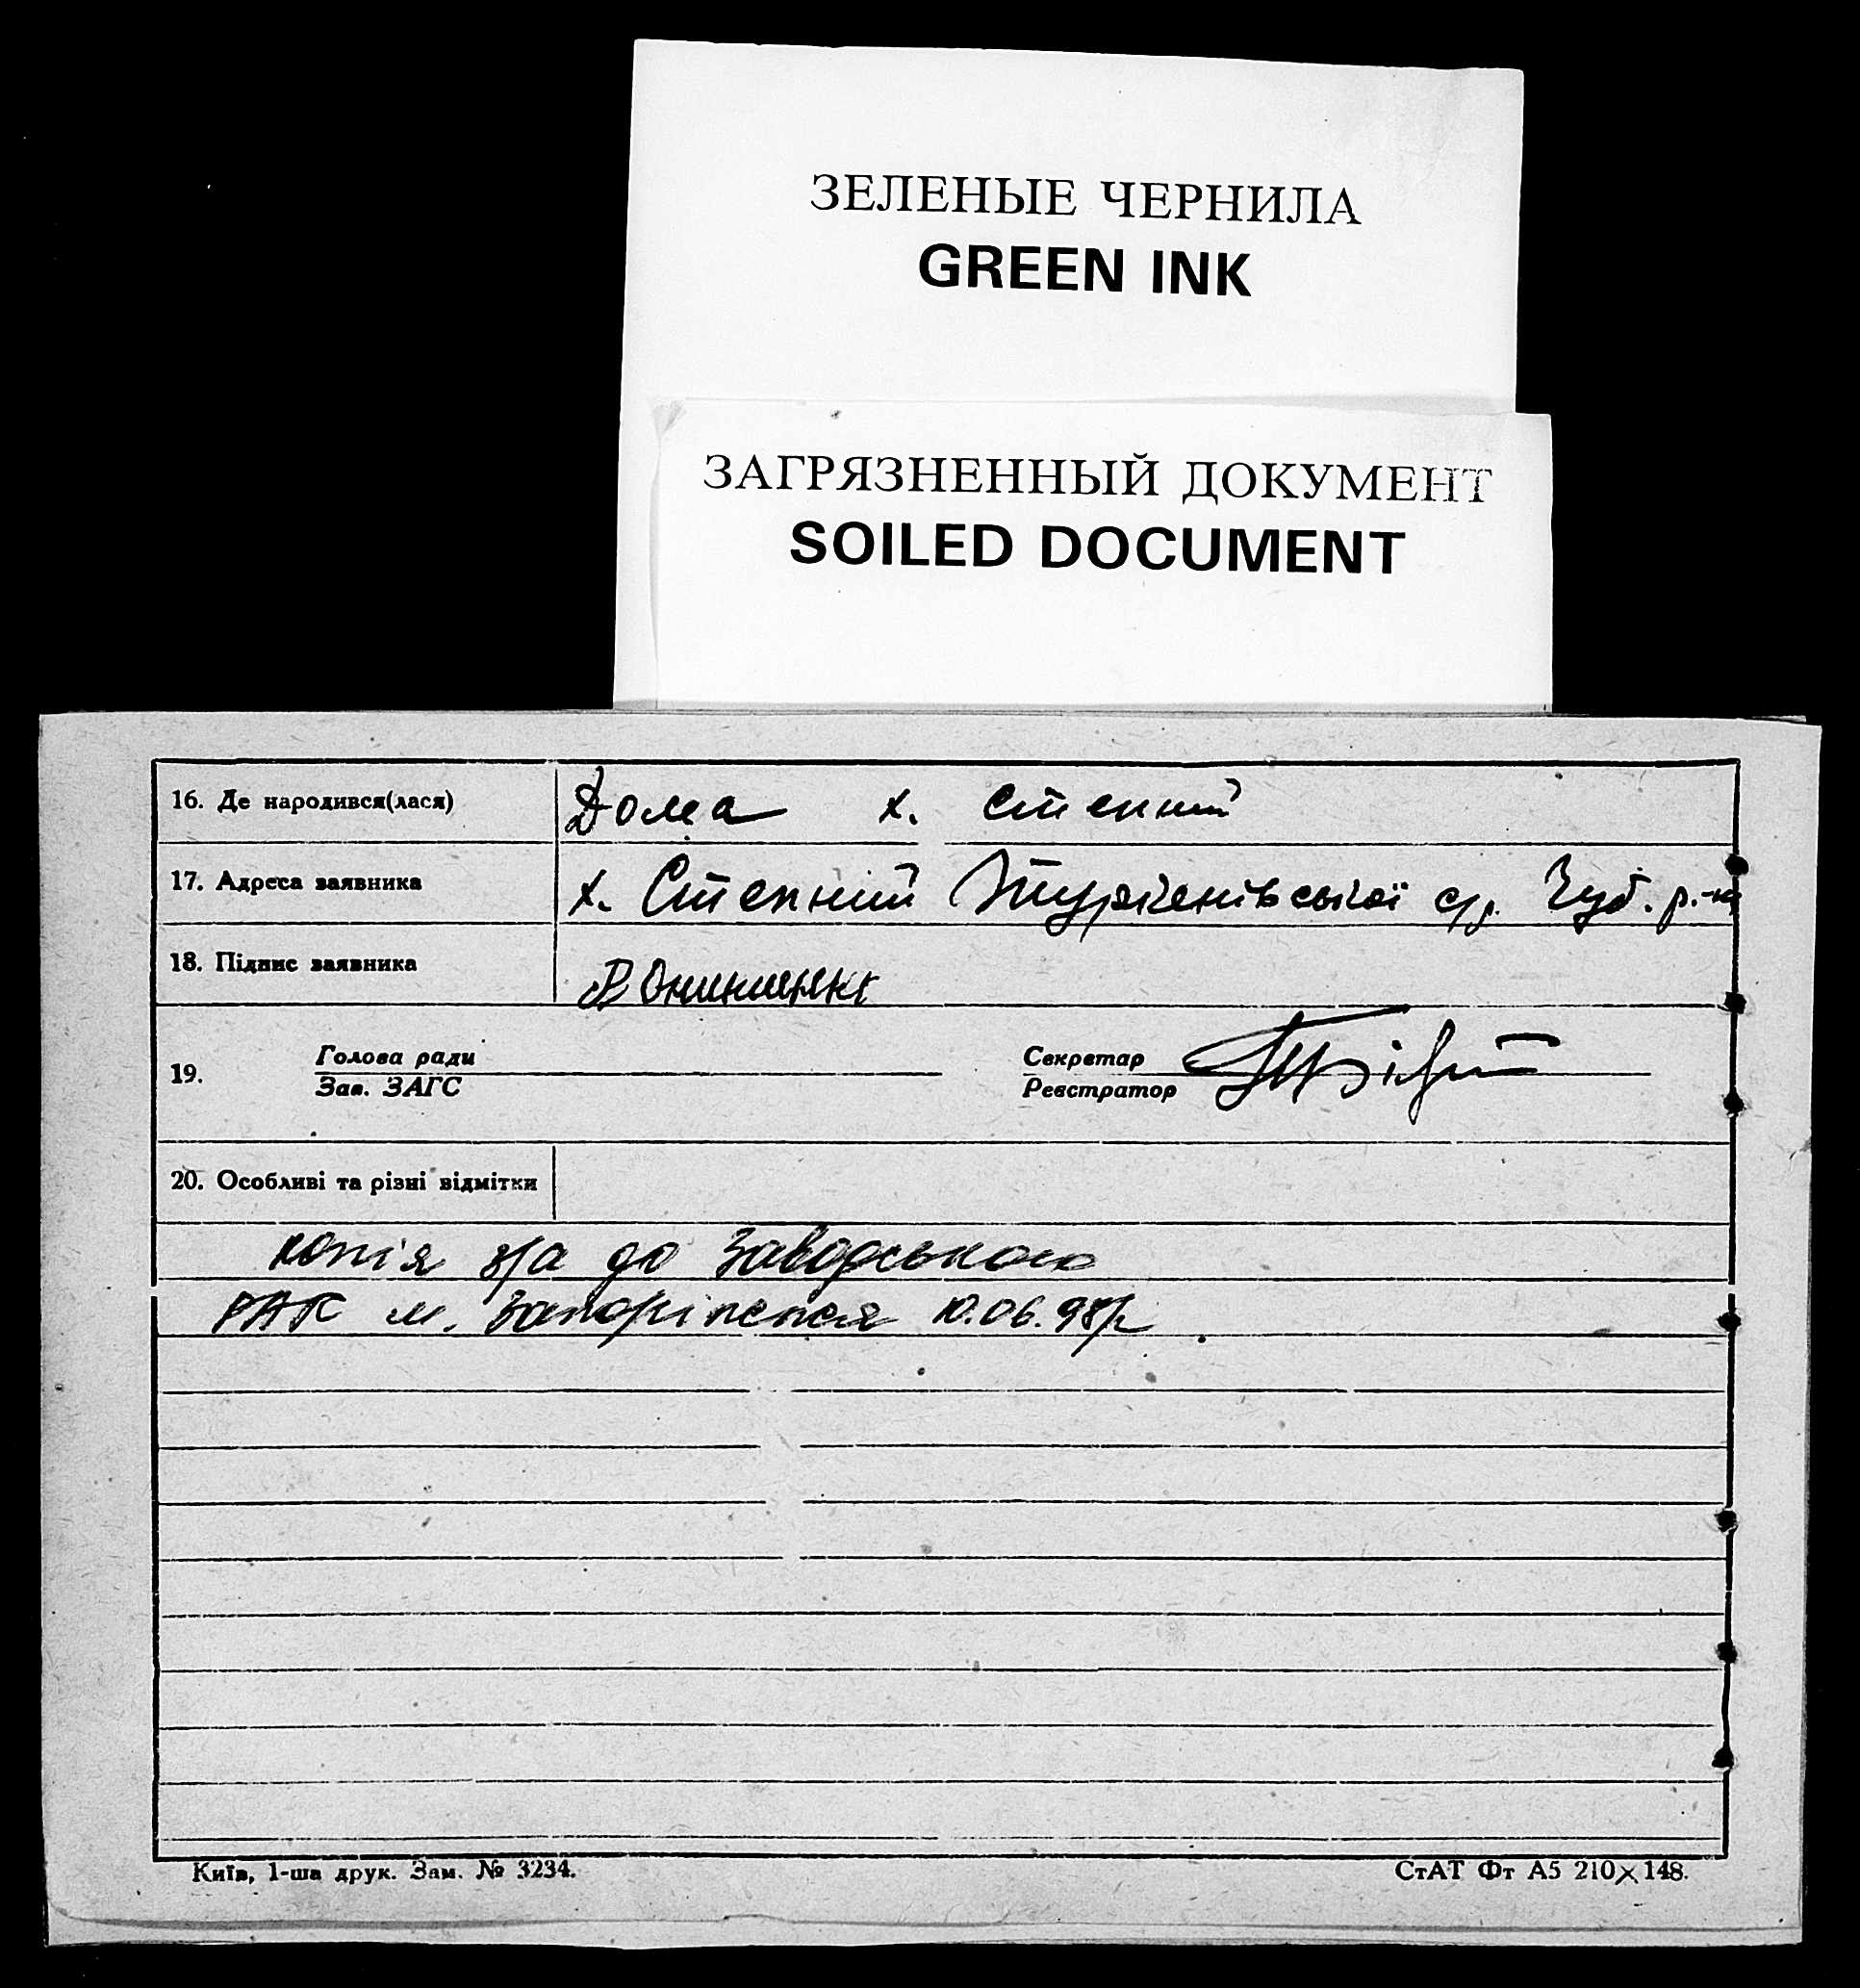 ЗЕЛЕНЫЕ ЧЕРНИЛА
GREEN INK
ЗАГРЯЗНЕННЫЙ ДОКУМЕНТ
SOILED DOCUMENT
16. Де народився(лася) Дома х. Степний
17. Адреса заявника х. Степний с/р. Чуб. р-н
18. Підпис заявника
19. Голова ради Секретар
Зав. ЗАГС Реєстратор
20. Особливі та різні відмітки
копія з/а до Заводського
РАГС м. Запоріжжя 10.06.98р
Київ, 1-ша друк. Зам. № 3234. СтАТ Фт А5 210×148.